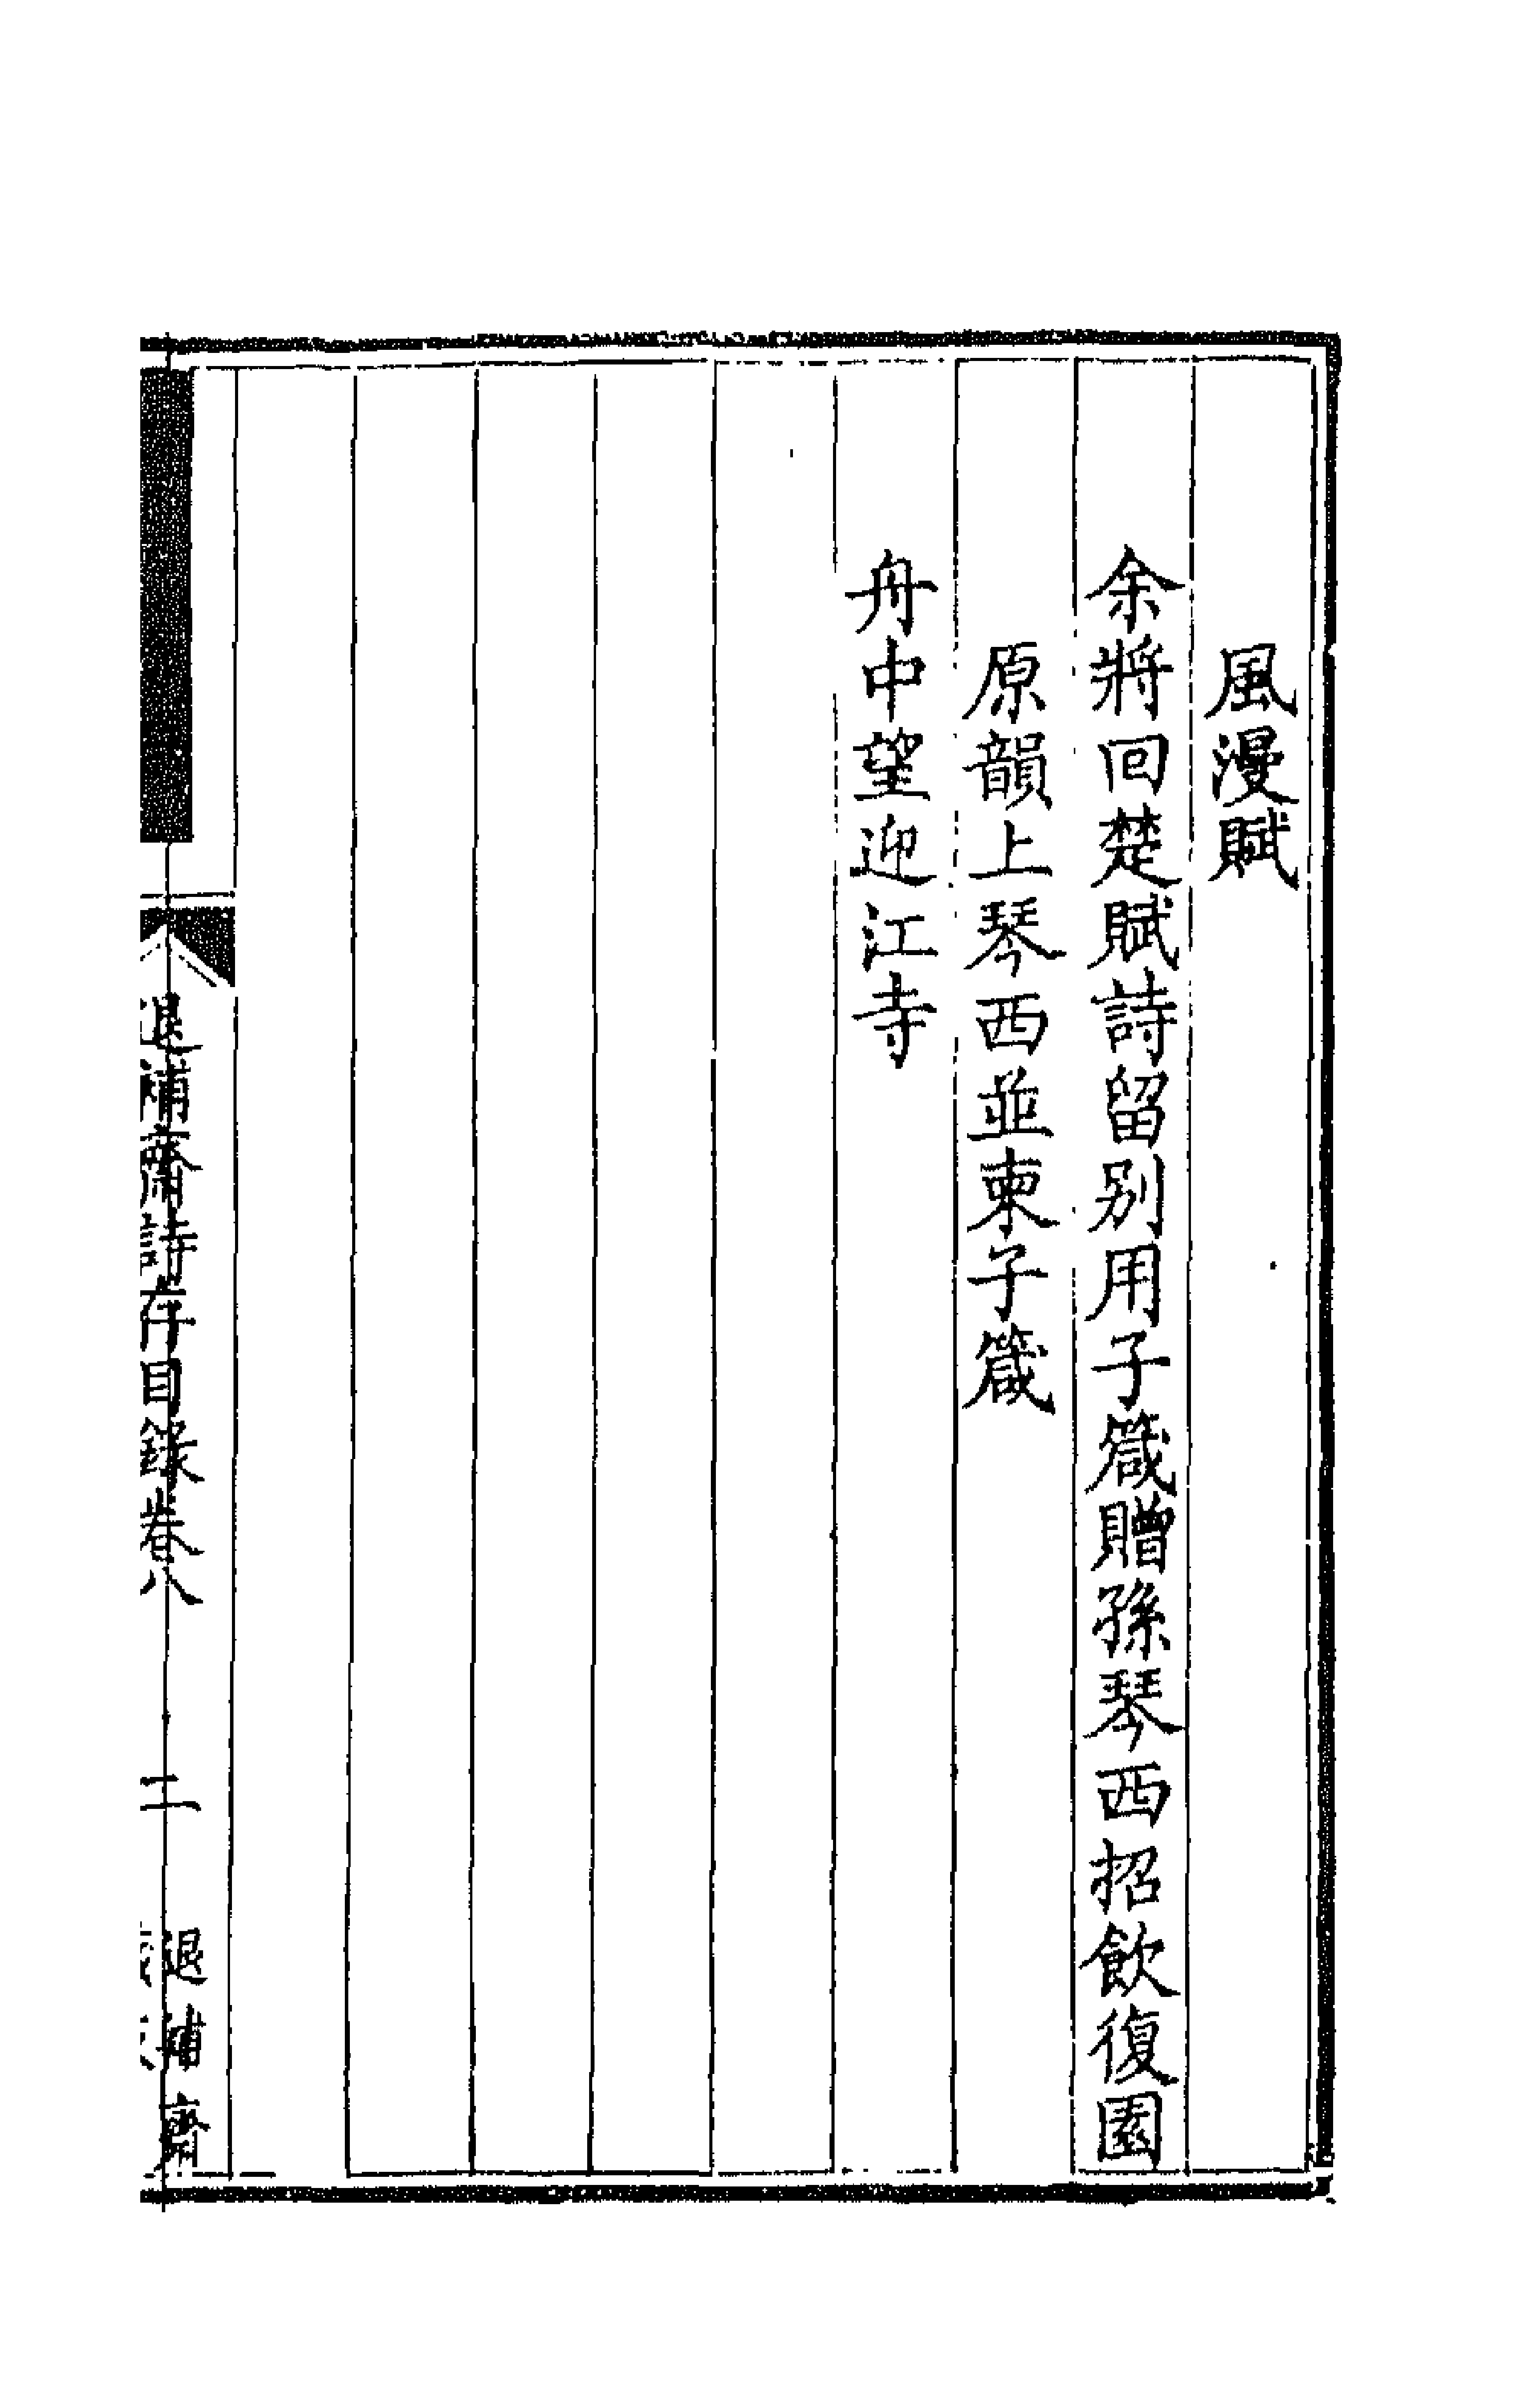 風漫賦
余將回楚賦詩留别用子箴贈孫琴西招飲復園
原韻上琴西並柬子箴
舟中望迎江寺
退補齋詩存目錄卷八
二
退補齋